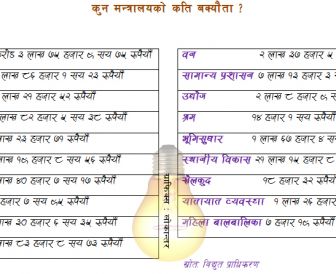 कुन मन्त्रालयको कति बक्यौता ?
करोड ३ लाख ७५ हजार ८ सय ७५ रुपैयाँ
लाख ८६ हजार १ सय २३ रुपैयाँ
लाख २१ हजार ५२ रुपैयाँ
लाख ८२ हजार ५ सय ३८ रुपैयाँ
लाख २३ हजार ७१ रुपैयाँ
लाख १८ हजार ८ सय ५६ रुपैयाँ
लाख ४० हजार ९ सय १७ रुपैयाँ
हजार ७ सय ८५ रुपैयाँ
लाख ३० हजार ६ सय ३५ रुपैयाँ
लाख ८३ हजार ८ सय ७३ रुपैयाँ
वन २ लाख ३७ ह
सामान्य प्रशासन ७ लाख १३ हजार ३
उद्योग २ लाख ८ हजार ८
श्रम १४ हजार १ स
भूमिसुधार १ लाख ६७ हजार ४
स्थानीय विकास २१ लाख १५
खेलकुद १८ हजार
यातायात व्यवस्था १ लाख २६
महिला बालबालिका ७ हजार १८
स्रोत: विद्युत प्राधिकरण